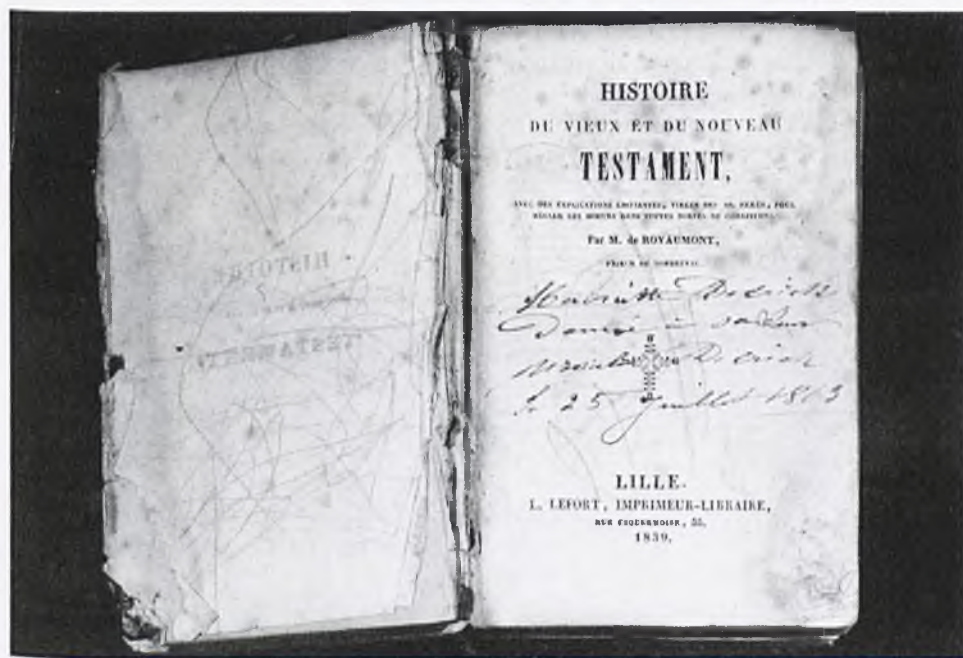 HISTOIRE
DU VIEUX ET DU NOUVEAU
TESTAMENT,
AVEC DES EXPLICATIONS ÉDIFIANTES, TIRÉES DES SS. PÈRES, POUR
RÉGLER LES MŒURS DANS TOUTES SORTES DE CONDITIONS.
Par M. de ROYAUMONT,
PRIEUR DE SOMBREVAL.
donné à
le 25 Juillet
LILLE.
L. LEFORT, IMPRIMEUR-LIBRAIRE,
RUE ESQUERMOISE, 55.
1839.
HISTOIRE
TESTAMENT